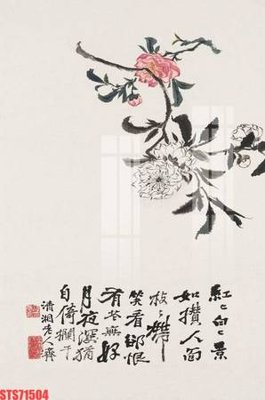 紅〻白〻景
如攢人面
枝〻
笑看卻恨
有花無好
月夜深猶
自倚欄干
清湘老人濟
STS71504